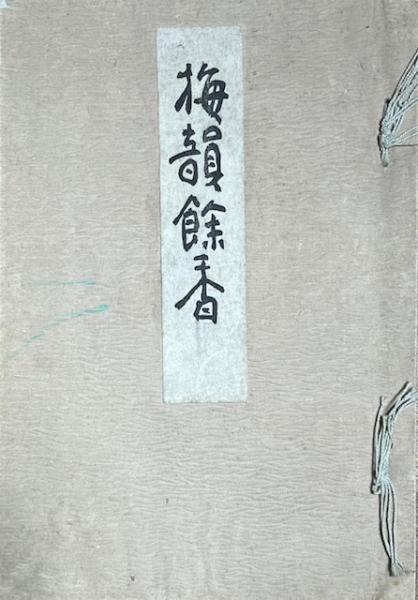 梅韻餘香